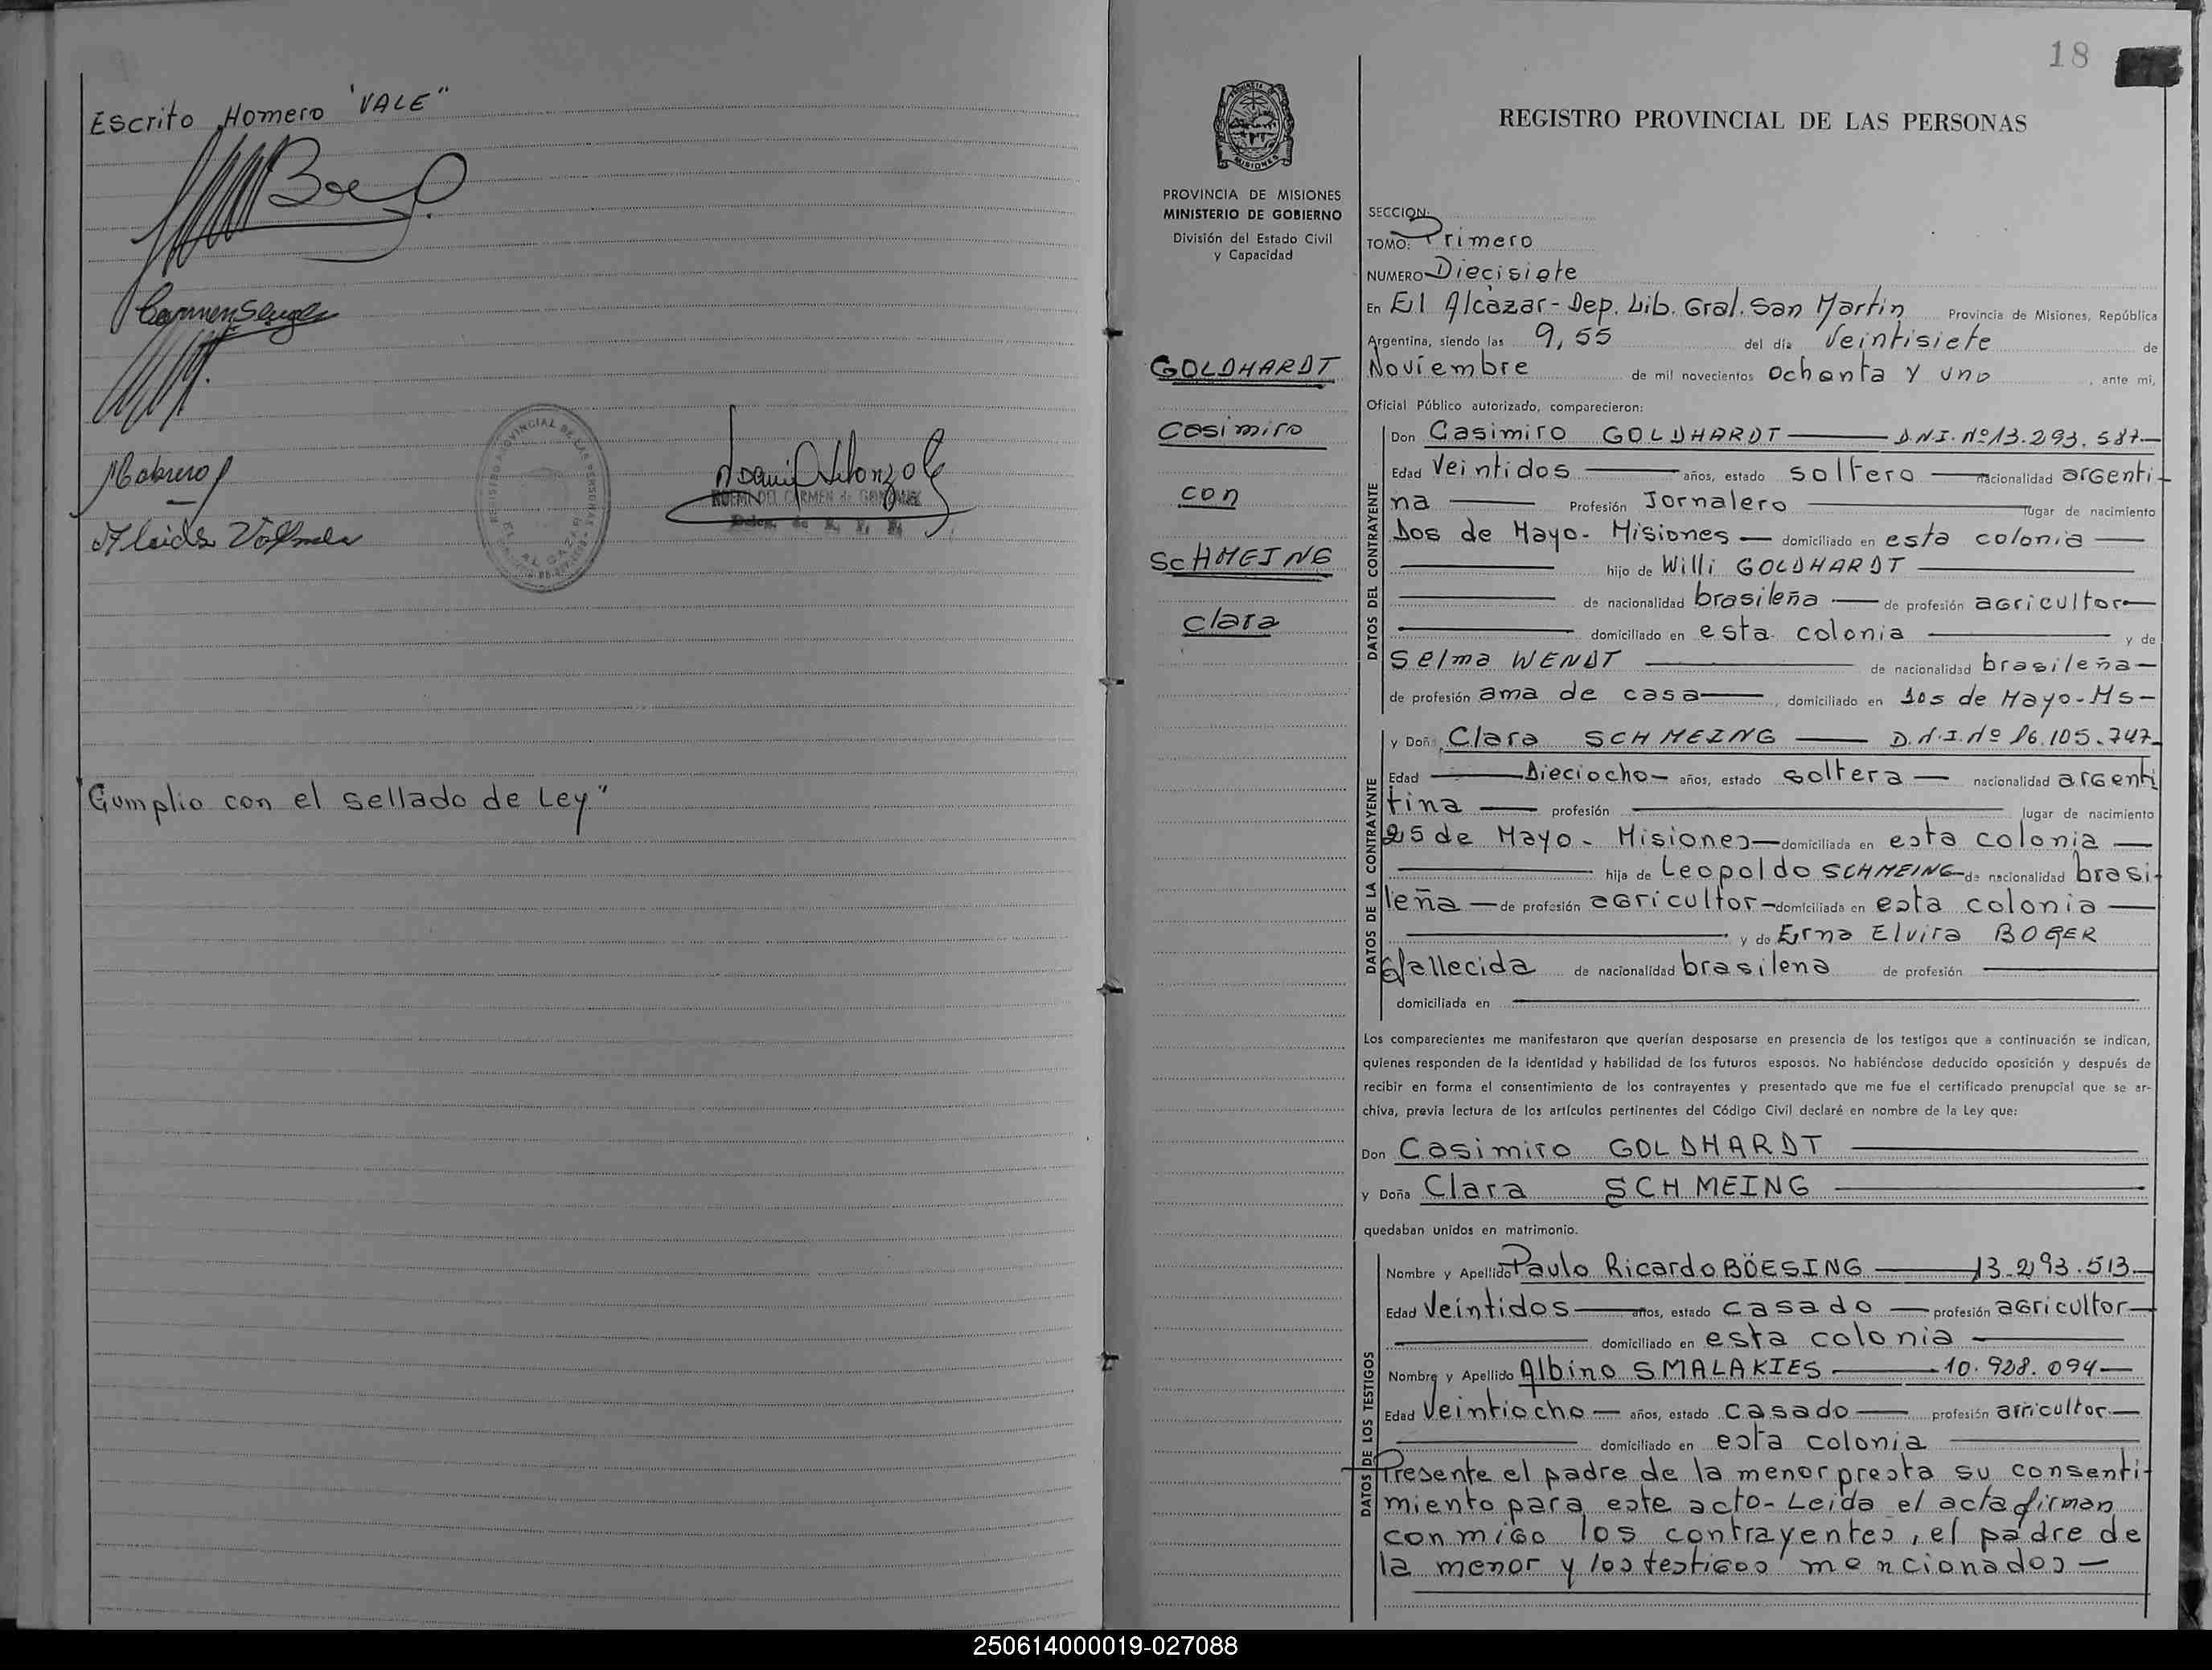 Escrito Homero "VALE"
Carmen
"Cumplio con el sellado de Ley"
18
PROVINCIA DE MISIONES
MINISTERIO DE GOBIERNO
División del Estado Civil
y Capacidad
GOLDHARDT
Casimiro
con
SCHMEING
Clara
REGISTRO PROVINCIAL DE LAS PERSONAS
SECCION:
TOMO: Primero
NUMERO Diecisiete
En El Alcázar - Dep. Lib. Gral. San Martin Provincia de Misiones, República
Argentina, siendo las 9,55 del día Veintisiete de
Noviembre de mil novecientos ochenta y uno, ante mi,
Oficial Público autorizado, comparecieron:
DATOS DEL CONTRAYENTE
Don Casimiro GOLDHARDT — D.N.I. Nº 13.293.587 —
Edad Veintidos — años, estado soltero — nacionalidad argenti-
na — Profesión Jornalero — lugar de nacimiento
Dos de Mayo - Misiones — domiciliado en esta colonia —
— hijo de Willi GOLDHARDT —
— de nacionalidad brasileña — de profesión agricultor —
— domiciliado en esta colonia — y de
Selma WENDT — de nacionalidad brasileña —
de profesión ama de casa —, domiciliado en Dos de Mayo - Ms —
DATOS DE LA CONTRAYENTE
y Doña Clara SCHMEING — D.N.I. Nº 16.105.747 —
Edad — Dieciocho — años, estado soltera — nacionalidad argenti
tina — profesión — lugar de nacimiento
25 de Mayo - Misiones — domiciliada en esta colonia —
— hija de Leopoldo SCHMEING de nacionalidad brasi-
leña — de profesión agricultor — domiciliada en esta colonia —
— y de Erna Elvira BOGER
fallecida de nacionalidad brasilena de profesión —
domiciliada en —
Los comparecientes me manifestaron que querían desposarse en presencia de los testigos que a continuación se indican,
quienes responden de la identidad y habilidad de los futuros esposos. No habiéndose deducido oposición y después de
recibir en forma el consentimiento de los contrayentes y presentado que me fue el certificado prenupcial que se ar-
chiva, previa lectura de los artículos pertinentes del Código Civil declaré en nombre de la Ley que:
Don Casimiro GOLDHARDT —
y Doña Clara SCHMEING —
quedaban unidos en matrimonio.
DATOS DE LOS TESTIGOS
Nombre y Apellido Paulo Ricardo BÖESING — 13.293.513 —
Edad Veintidos — años, estado casado — profesión agricultor —
— domiciliado en esta colonia —
Nombre y Apellido Albino SMALAKIES — 10.928.094 —
Edad Veintiocho — años, estado casado — profesión agricultor —
— domiciliado en esta colonia —
Presente el padre de la menor presta su consenti-
miento para este acto - Leida el acta firman
conmigo los contrayentes, el padre de
la menor y los testigos mencionados —
250614000019-027088